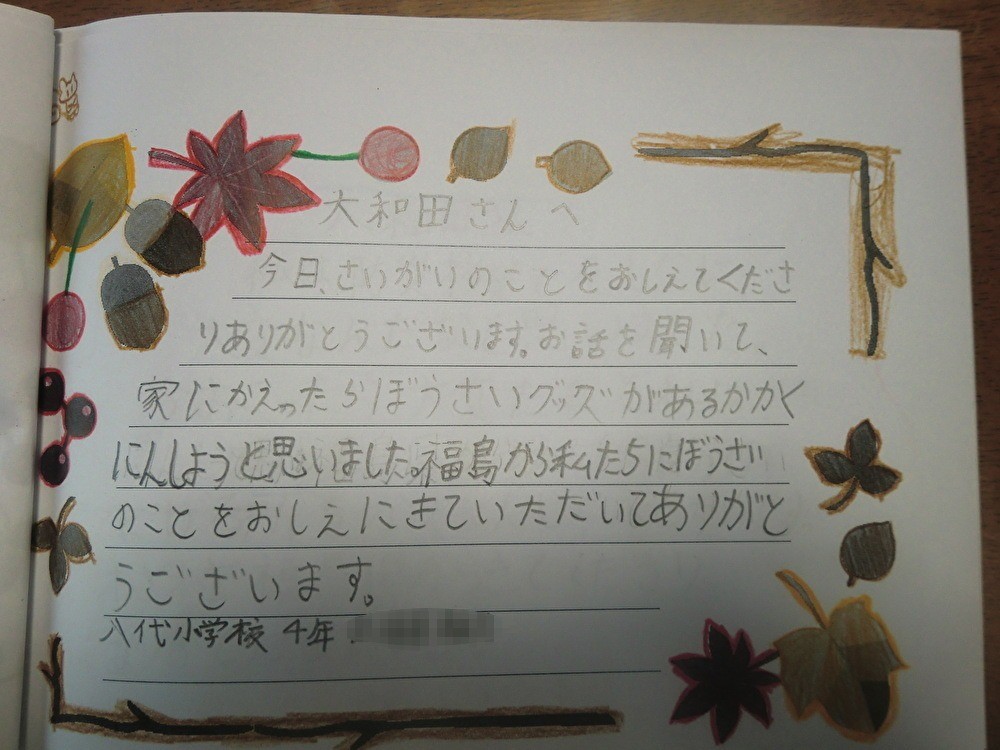 大和田さんへ
今日、さいがいのことをおしえてくださ
りありがとうございます。お話を聞いて、
家にかえったらぼうさいグッズがあるかかく
にんしようと思いました。福島から私たちにぼうさい
のことをおしえにきていただいてありがと
うございます。
八代小学校 4年